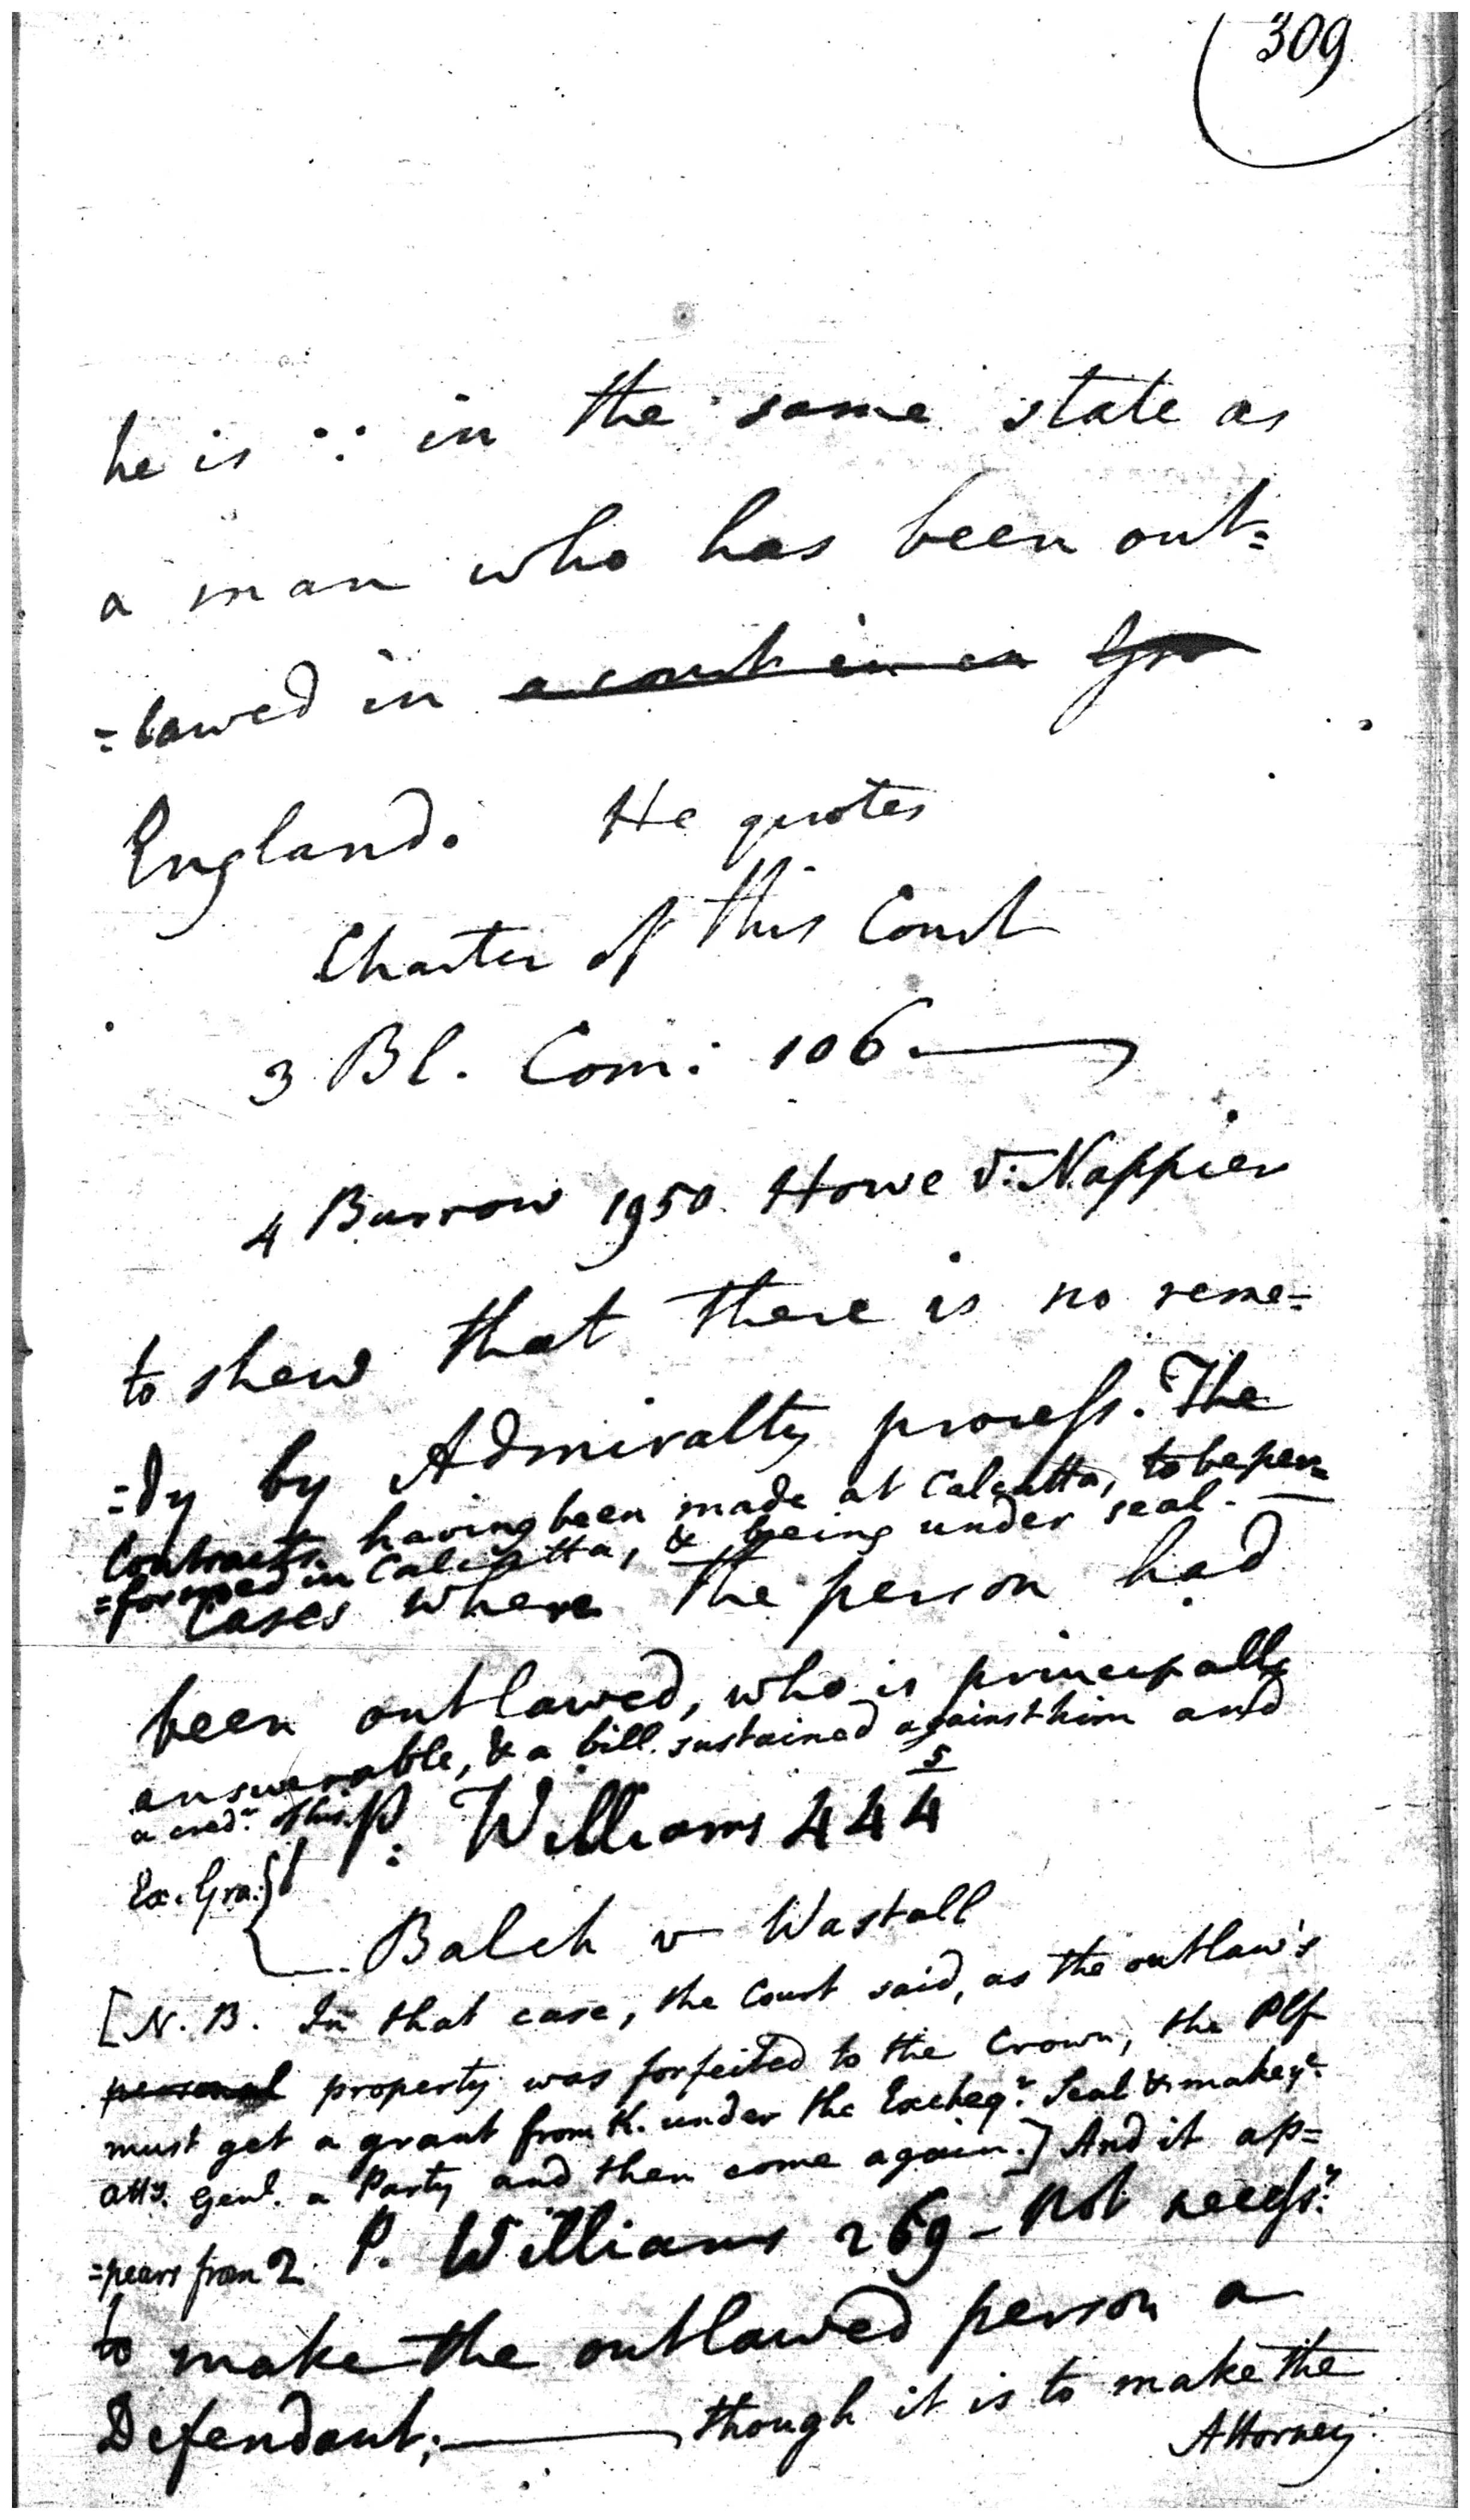 309
he is ∴ in the same state as
a man who has been out=
=lawed in a court in in Gr
England. He quotes
Charter of this Court
3 Bl. Com: 106
4 Burrow 1950. Howe v: Nappier
to shew that there is no reme=
=dy by Admiralty process. The
Contracts having been made at Calcutta, to be per=
=formed in Calcutta, & being under seal.
Cases where the person had
been outlawed, who is principally
answerable, & a bill sustained against him and
a cred.r of his. P: Williams 444
5
Ex. Gra:} 1
Balch v Wastall
[N.B. In that case, the Court said, as the outlaw's
personal property was forfeited to the Crown, the Plf
must get a grant from K. under the Excheq.r Seal & make y.e
Att.y Gen.l a Party and then come again.] And it ap=
=pears from 2 P. Williams 269 - not necess.y
to make the outlawed person a
Defendant; though it is to make the
Attorney